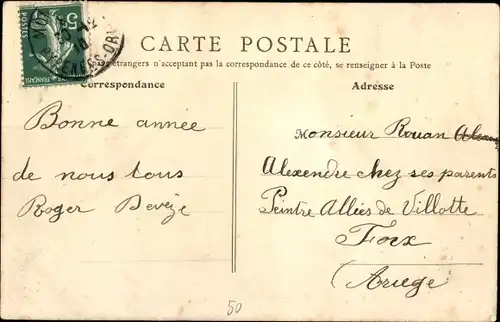 CARTE POSTALE
étrangers n'acceptant pas la correspondance de ce côté, se renseigner à la Poste
Correspondance
Adresse
Bonne année
de nous tous
Roger Devèze
Monsieur Rouan
Alexendre chez ses parents
Peintre Allées de Villotte
Foix
Ariege
50
5c
POSTES